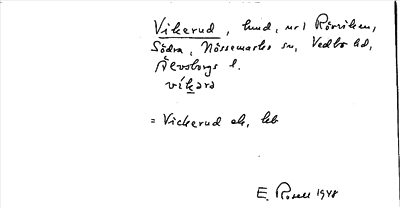 Vikerud, hmd, nr 1 Rörviken,
Södra, Nössemarks sn, Vedbo hd,
Älvsborgs l.
vikərə
= Vickerud ek, kb
E. Rosell 1948